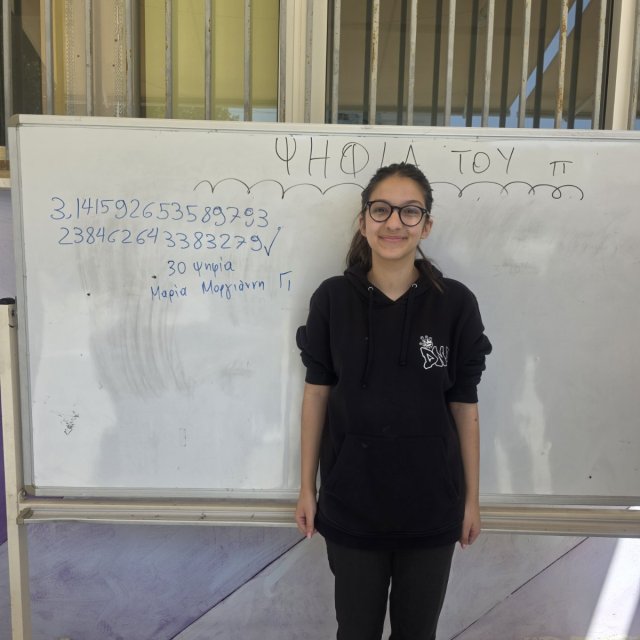 ΨΗΦΙΑ ΤΟΥ π
3,14159265358979 3
23846264 3383279✓
30 ψηφία
Μαρία Μοργιάννη Γ1